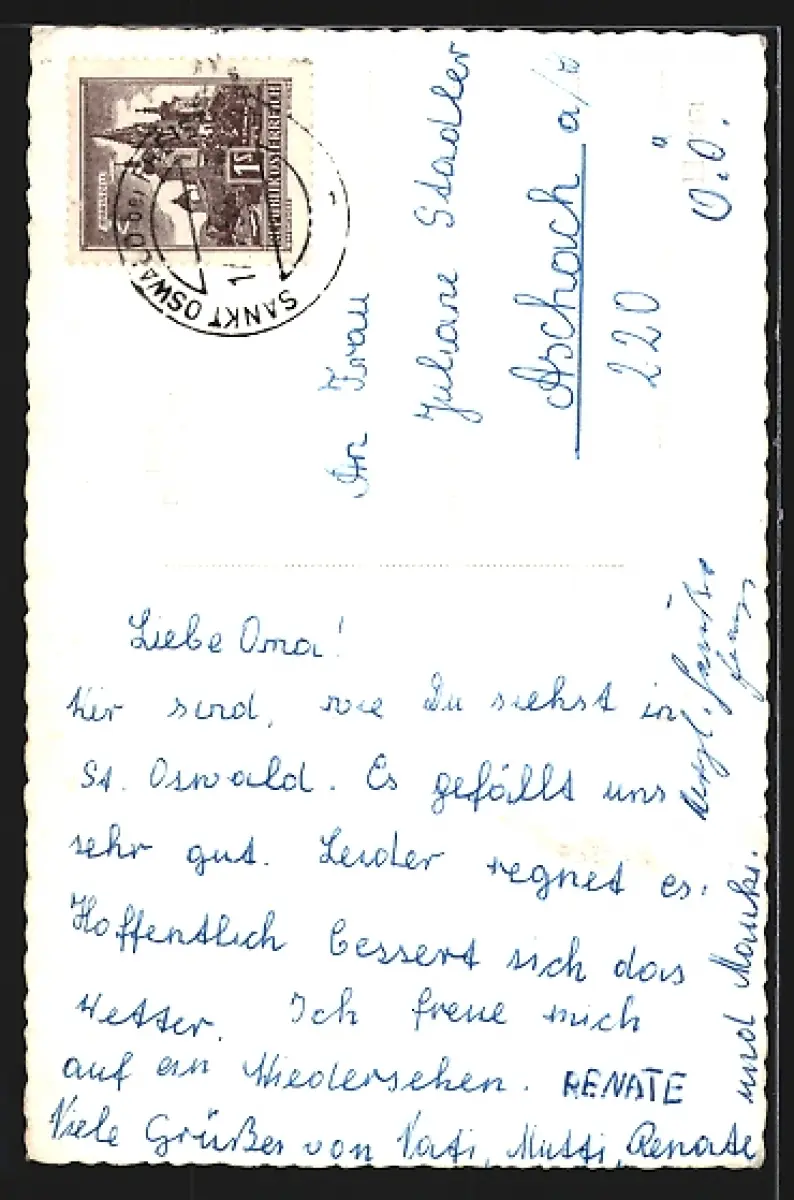 REPUBLIK ÖSTERREICH
1S
SANKT OSWALD bei
An Frau
Juliane Stadler
Aschach a/
220
O.Ö.
Liebe Oma!
Wir sind, wie Du siehst in
St. Oswald. Es gefällt uns
sehr gut. Leider regnet es.
Hoffentlich bessert sich das
Wetter. Ich freue mich
auf ein Wiedersehen. RENATE
Viele Grüße von Vati, Mutti, Renate
und
Herzl. Grüße